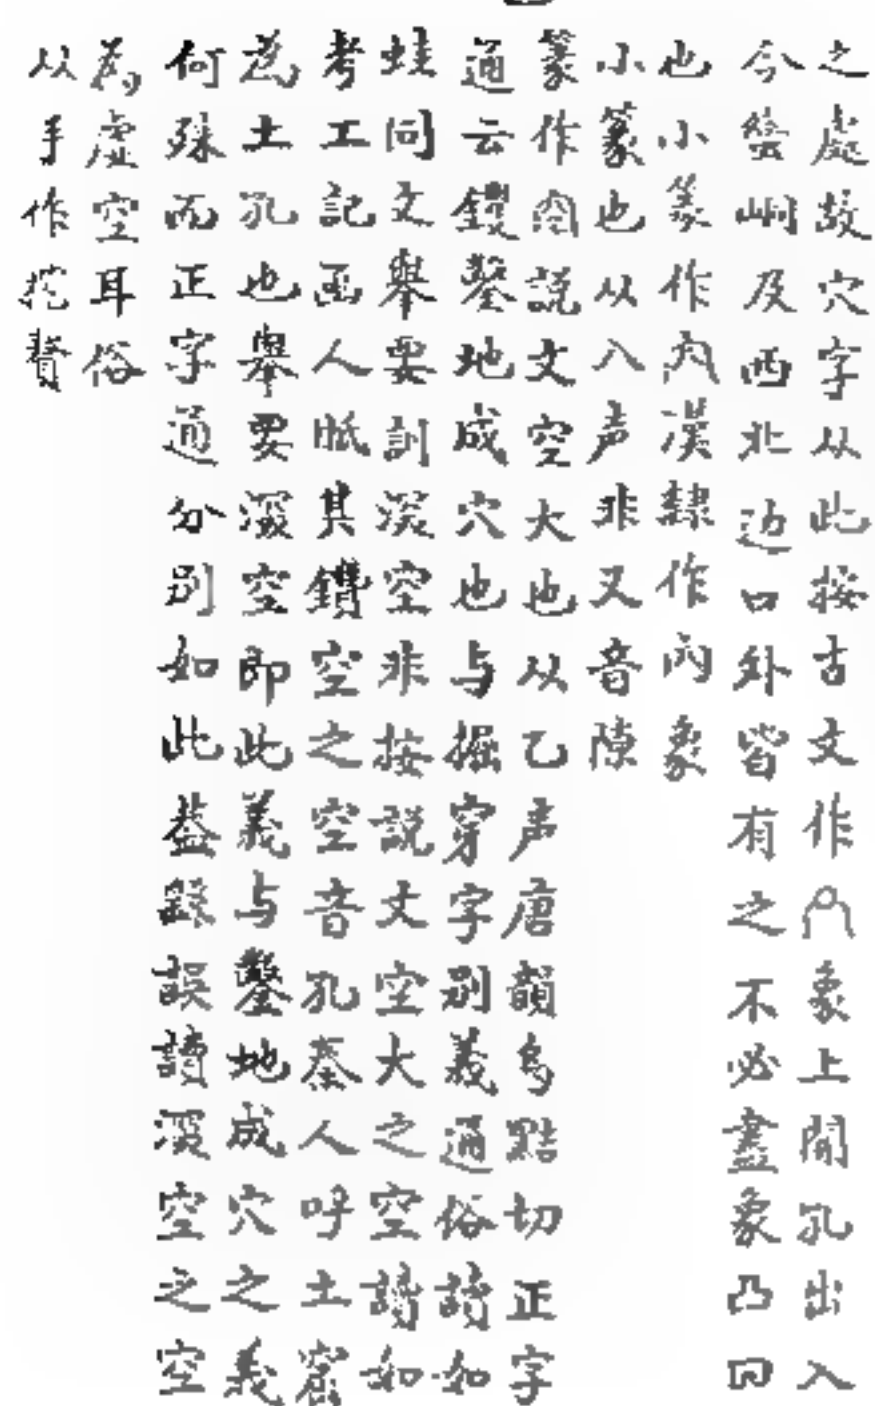 之處故穴字从此按古文作象上開孔出入
今峦峒及西北边口外皆有之不必盡象凸凹
也小篆作內漢隸作內象
小篆也从入声非又音陳
篆作说文空大也从乙声唐韻烏點切正字
通云鑿地成穴也与掘穿字别義通俗讀如
蛙同文舉要訓深空非按説文空大之空讀如
考工記函人眡其鑽空之空音孔秦人呼土窟
為土孔也舉要深空即此義与鑿地成穴之義
何殊而正字通分别如此蓋誤讀深空之空
為虛空耳俗
从手作挖贅